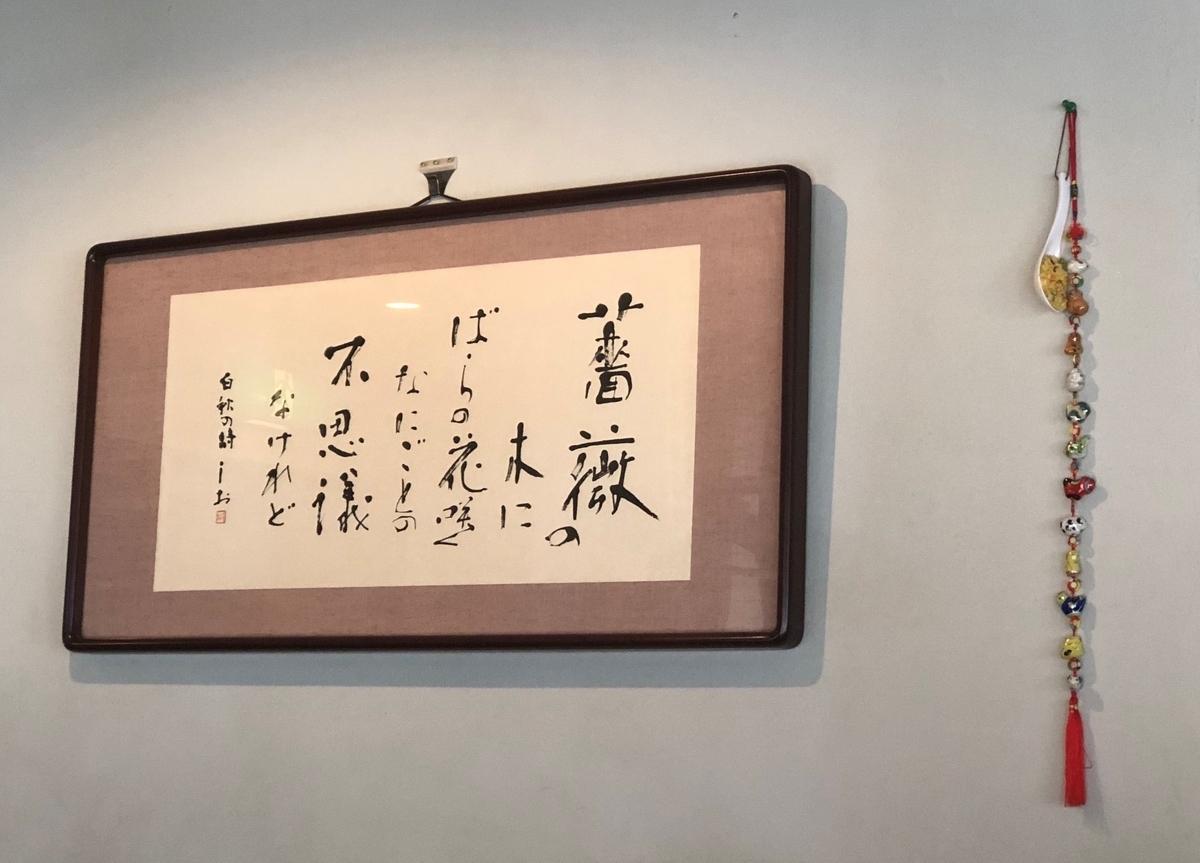 薔薇の
木に
ばらの花咲く
なにごとの
不思議
なけれど
白秋の詩